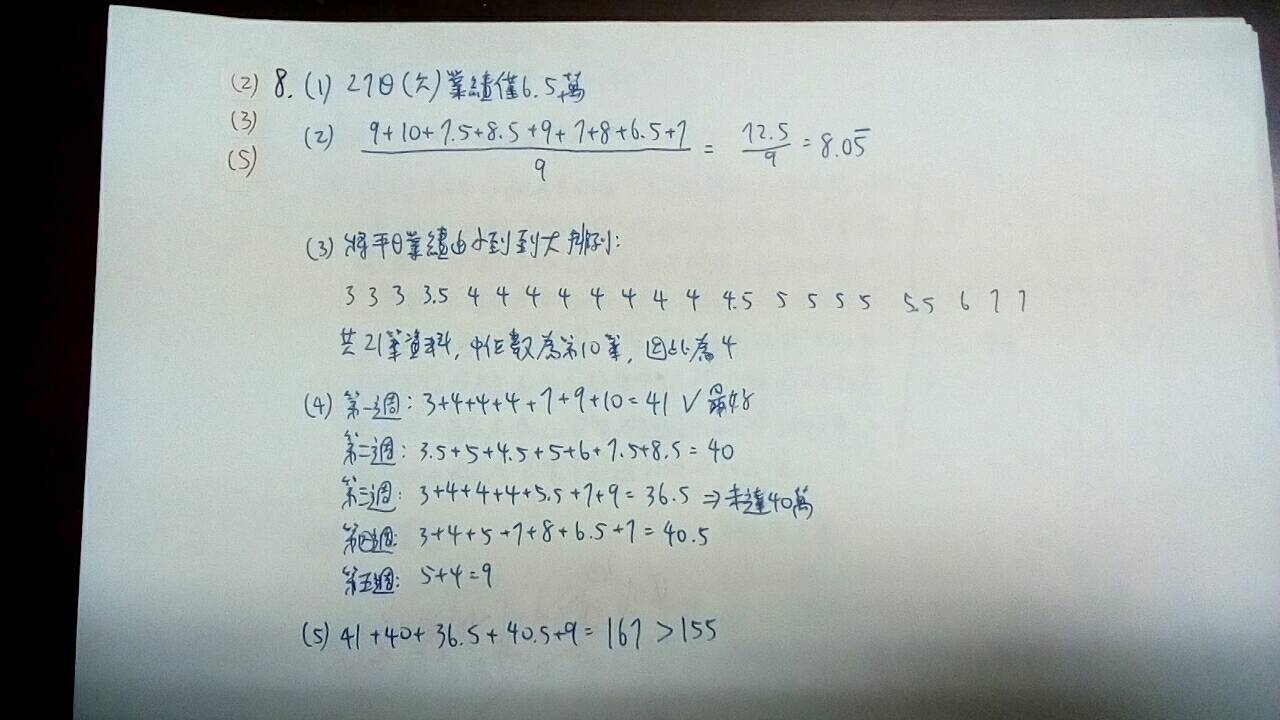 (2) 8. (1) 27日(六)業績僅6.5萬
(3)
(2) 9+10+7.5+8.5+9+7+8+6.5+7 / 9 = 72.5 / 9 = 8.05̅
(5)
(3) 將平日業績由小到到大排列:
3 3 3 3.5 4 4 4 4 4 4 4 4 4.5 5 5 5 5 5.5 6 7 7
共21筆資料, 中位數為第10筆, 因此為4
(4) 第一週: 3+4+4+4+7+9+10=41 ✓ 最好
第二週: 3.5+5+4.5+5+6+7.5+8.5=40
第三週: 3+4+4+4+5.5+7+9=36.5 ⇒ 未達40萬
第四週: 3+4+5+7+8+6.5+7=40.5
第五週: 5+4=9
(5) 41+40+36.5+40.5+9=167>155